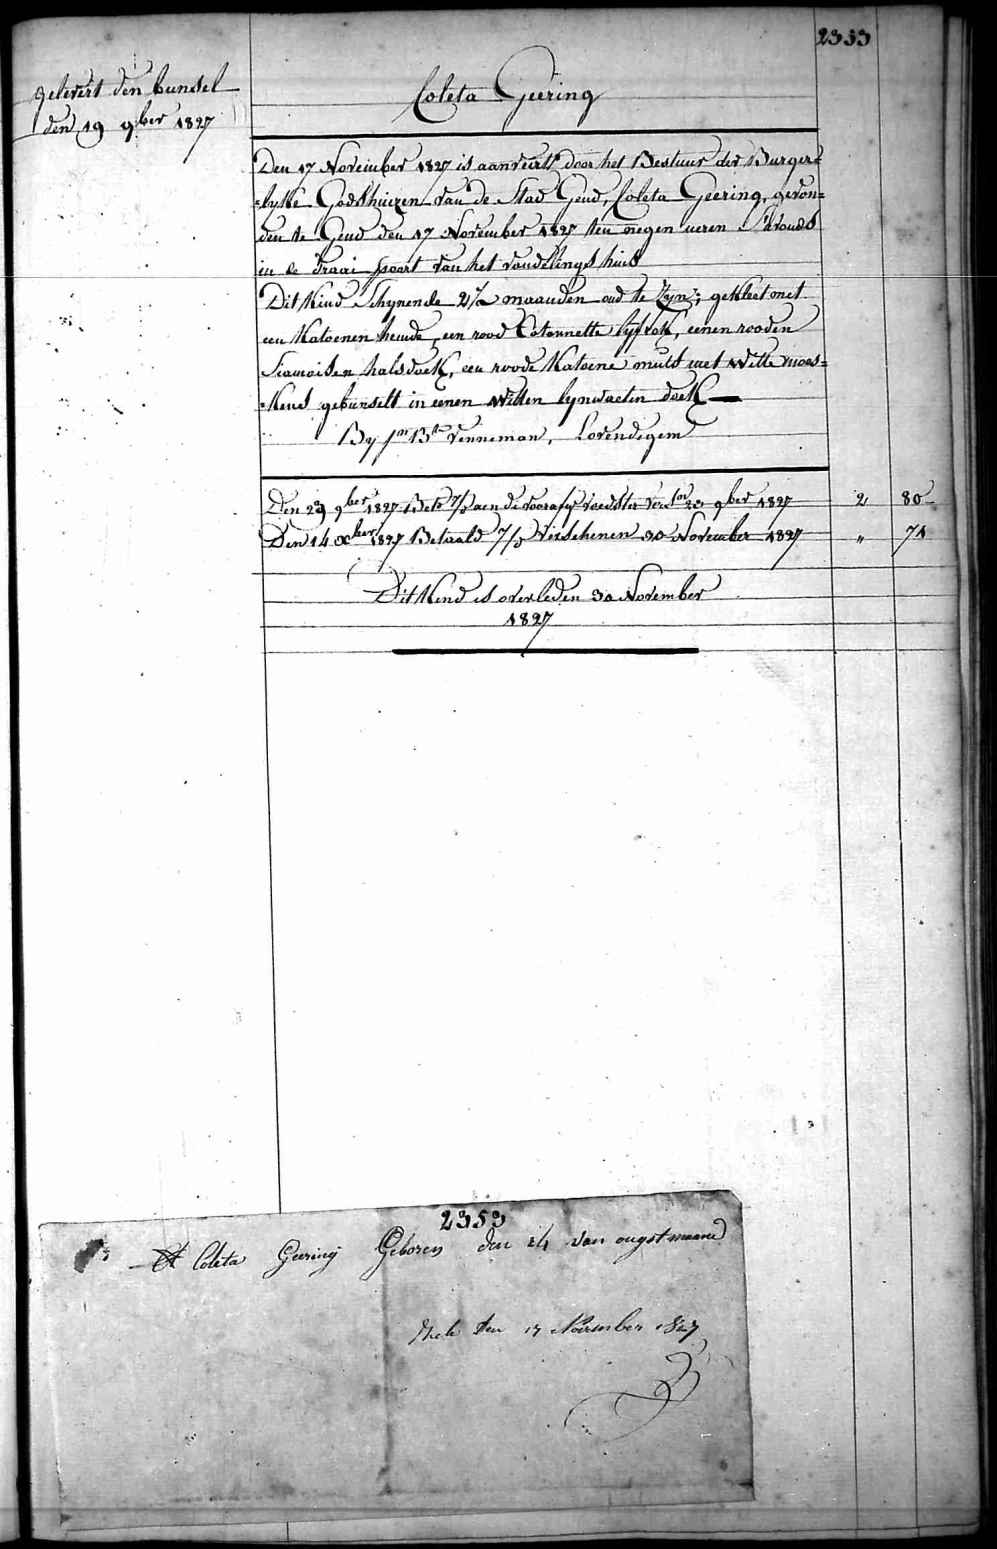 2353
gelevert den bunsel
den 19 9ber 1827
Coleta Geering
Den 17 November 1827 is aanveert door het Bestuur der Burger=
=lykke Godshuizen van de Stad Gend, Coleta Geering, gevon=
den te Gend den 17 November 1827 ten negen ueren S'avonds
in de Draai poort van het vondelings huis
Dit Kind Schynende 2 1/2 maanden oud te Zyn; gekleet met
een Katoenen hemde, een rood Cotonnette lyfrok, eenen rooden
Siamoisen halsdoek, een roode Katoene muts met witte moes=
=kens gebunselt in eenen witten lynwaeten doek
By Jn Bte Venneman, Lovendegem
Den 23 9ber 1827 aen de voedster 23 9ber 1827 2 80
Den 14 Xber 1827 Betaald 7/3 Verschenen 30 November 1827 " 71
Dit Kind is overleden 30 November
1827
2353
Coleta Geering Geboren den 14 van ougstmaand
den 17 November 1827